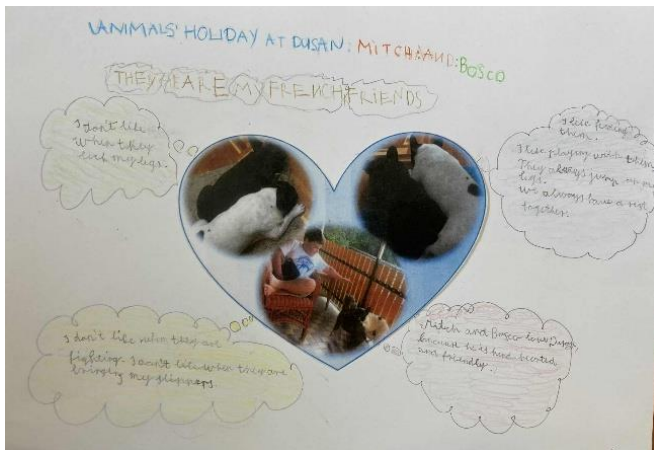 ANIMALS' HOLIDAY AT DUSAN: MITCH AND: BOSCO
THEY ARE MY FRENCH FRIENDS
I don't like
when they
lick my legs.
I like fixing
them.
I like playing with them
They always jump on my
legs.
We always have a rest
together.
I don't like when they are
fighting. I don't like when they are
bringing my slippers.
Mitch and Bosco love Dusan
because he is kind hearted
and friendly.